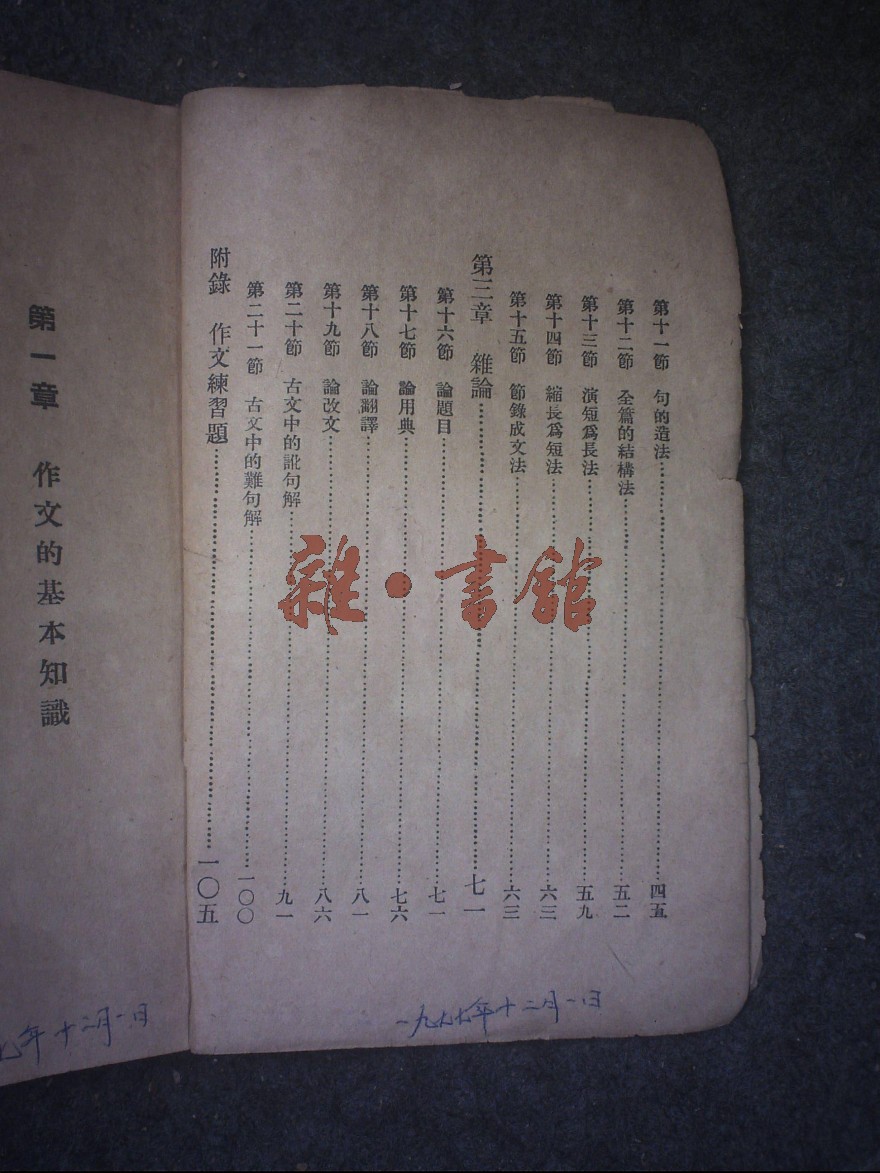 第十一節　句的造法……四五
第十二節　全篇的結構法……五二
第十三節　演短爲長法……五九
第十四節　縮長爲短法……六三
第十五節　節錄成文法……六三
第三章　雜論……七一
第十六節　論題目……七一
第十七節　論用典……七六
第十八節　論翻譯……八一
第十九節　論改文……八六
第二十節　古文中的訛句解……九一
第二十一節　古文中的難句解……一〇〇
附錄　作文練習題……一〇五
一九七七年十二月一日
雜·書館
第一章　作文的基本知識
七年十二月一日